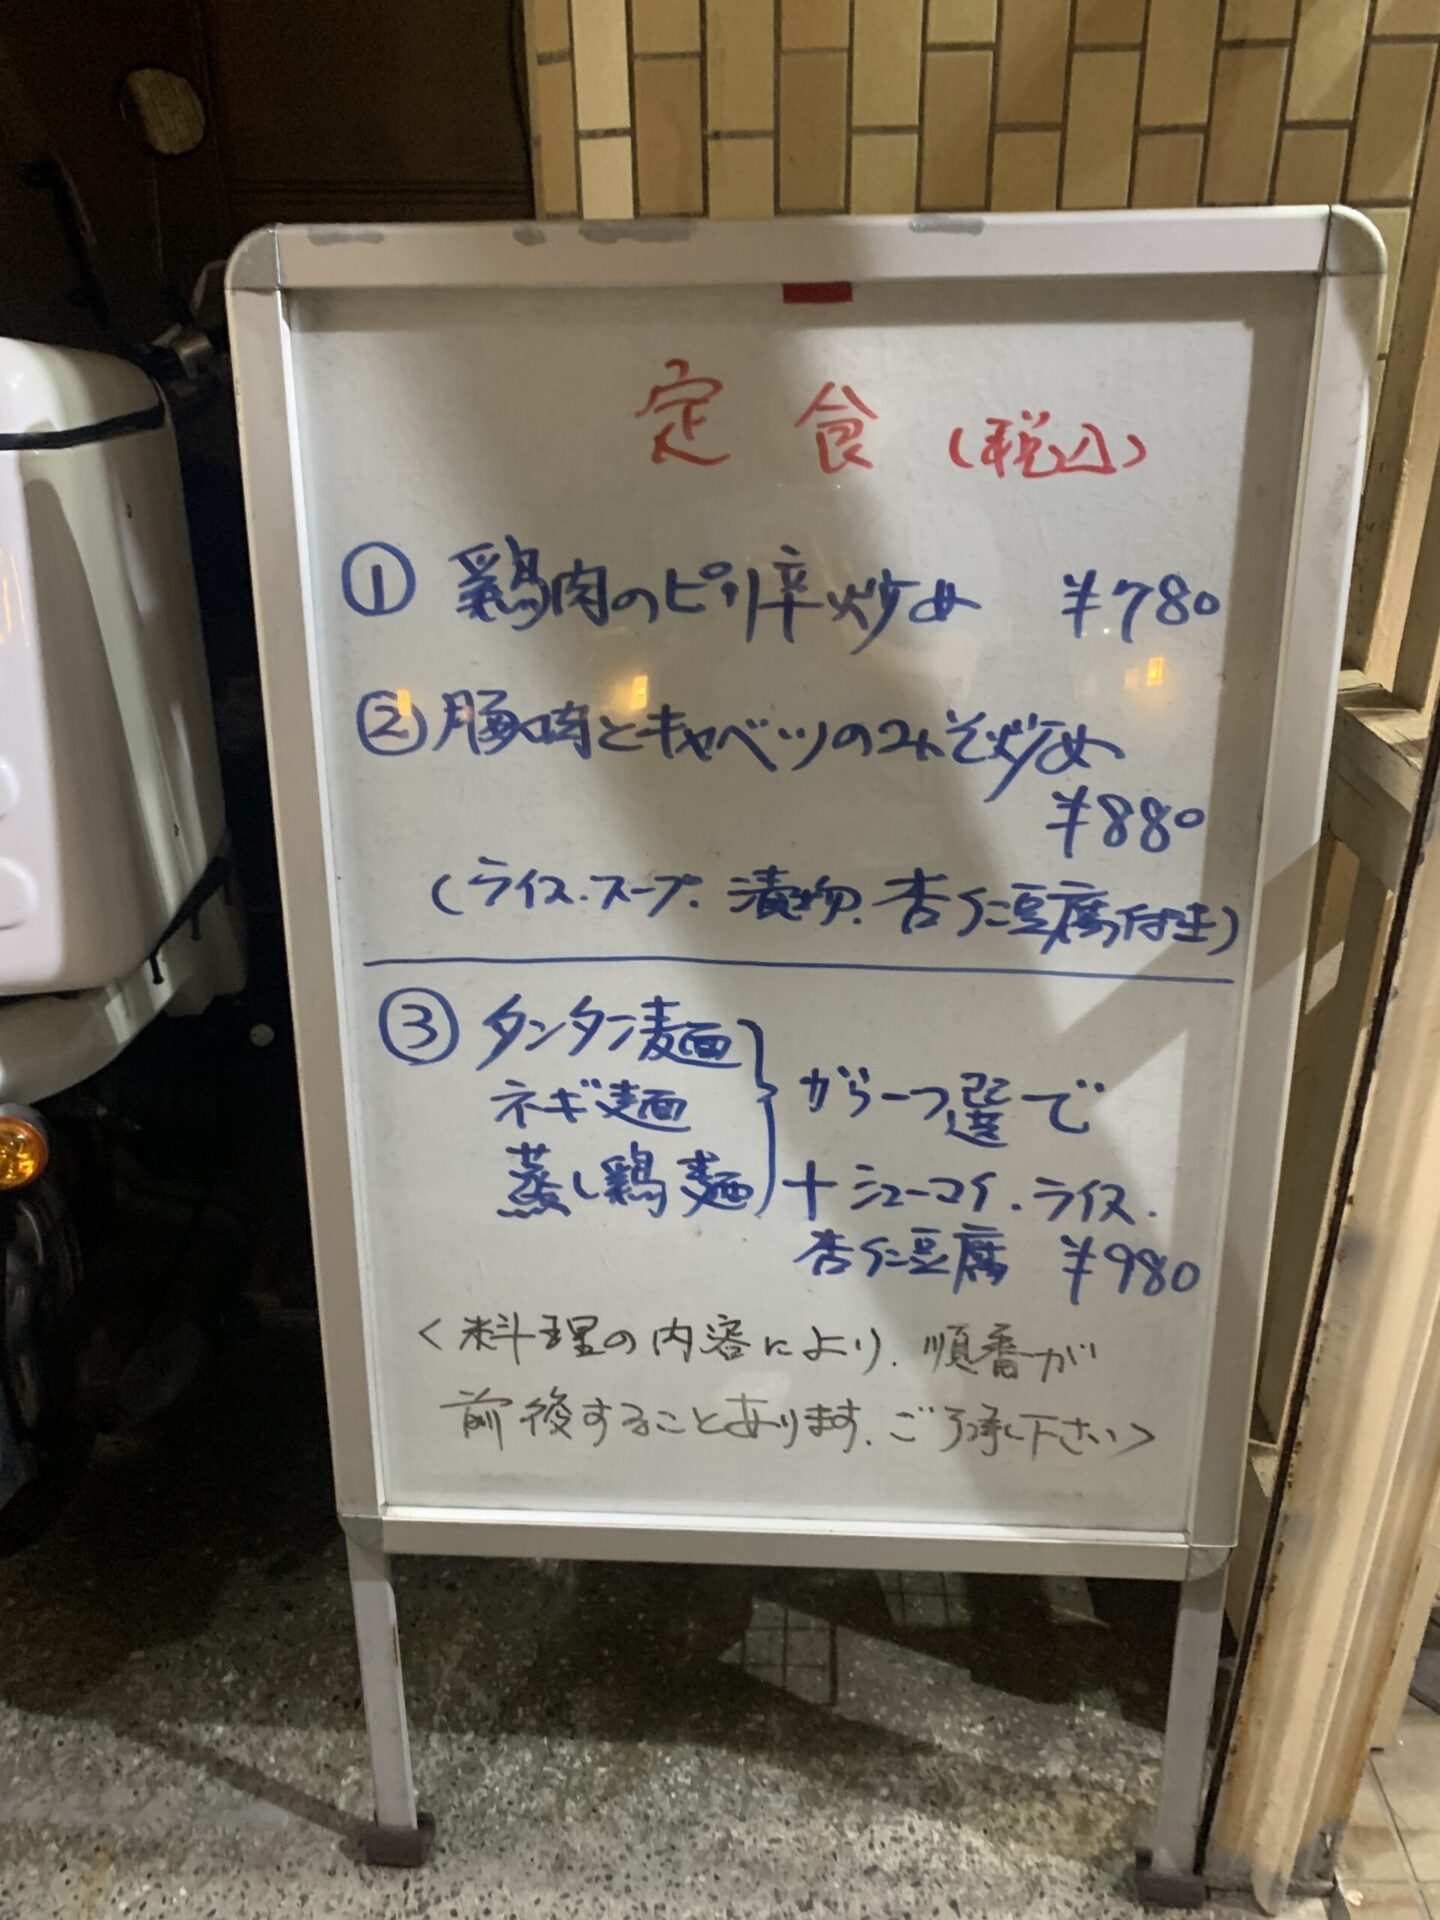 定食(税込)
① 鶏肉のピリ辛炒め ¥780
② 豚肉とキャベツのみそ炒め
¥880
(ライス.スープ.漬物.杏仁豆腐付き)
③ タンタン麺
ネギ麺
蒸し鶏麺
から一つ選で
+シューマイ.ライス.
杏仁豆腐 ¥980
<料理の内容により.順番が
前後することあります.ご了承し下さい>